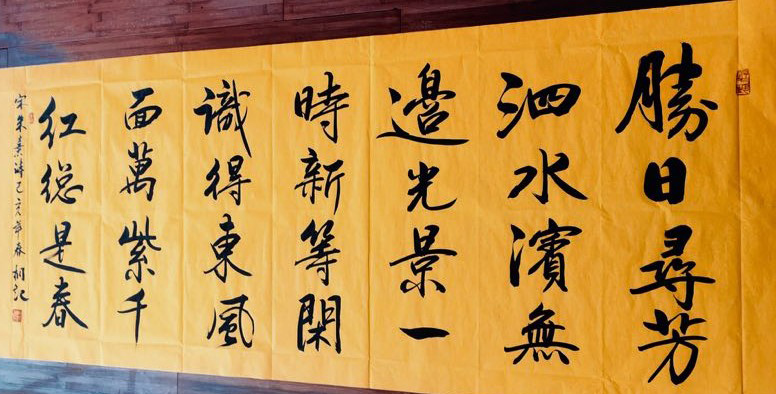 勝日尋芳
泗水濱無
邊光景一
時新等閑
識得東風
面萬紫千
紅總是春
宋朱熹詩己亥年春桐記